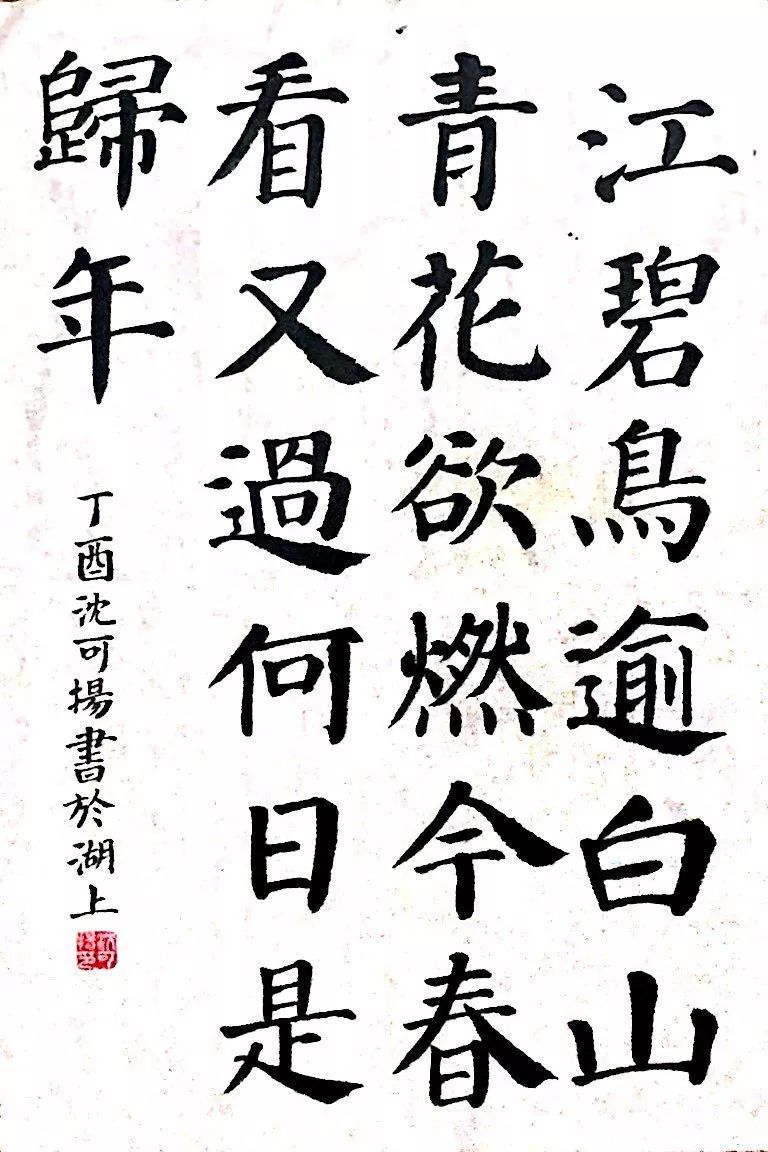 江碧鳥逾白山
青花欲燃今春
看又過何日是
歸年
丁酉沈可揚書於湖上